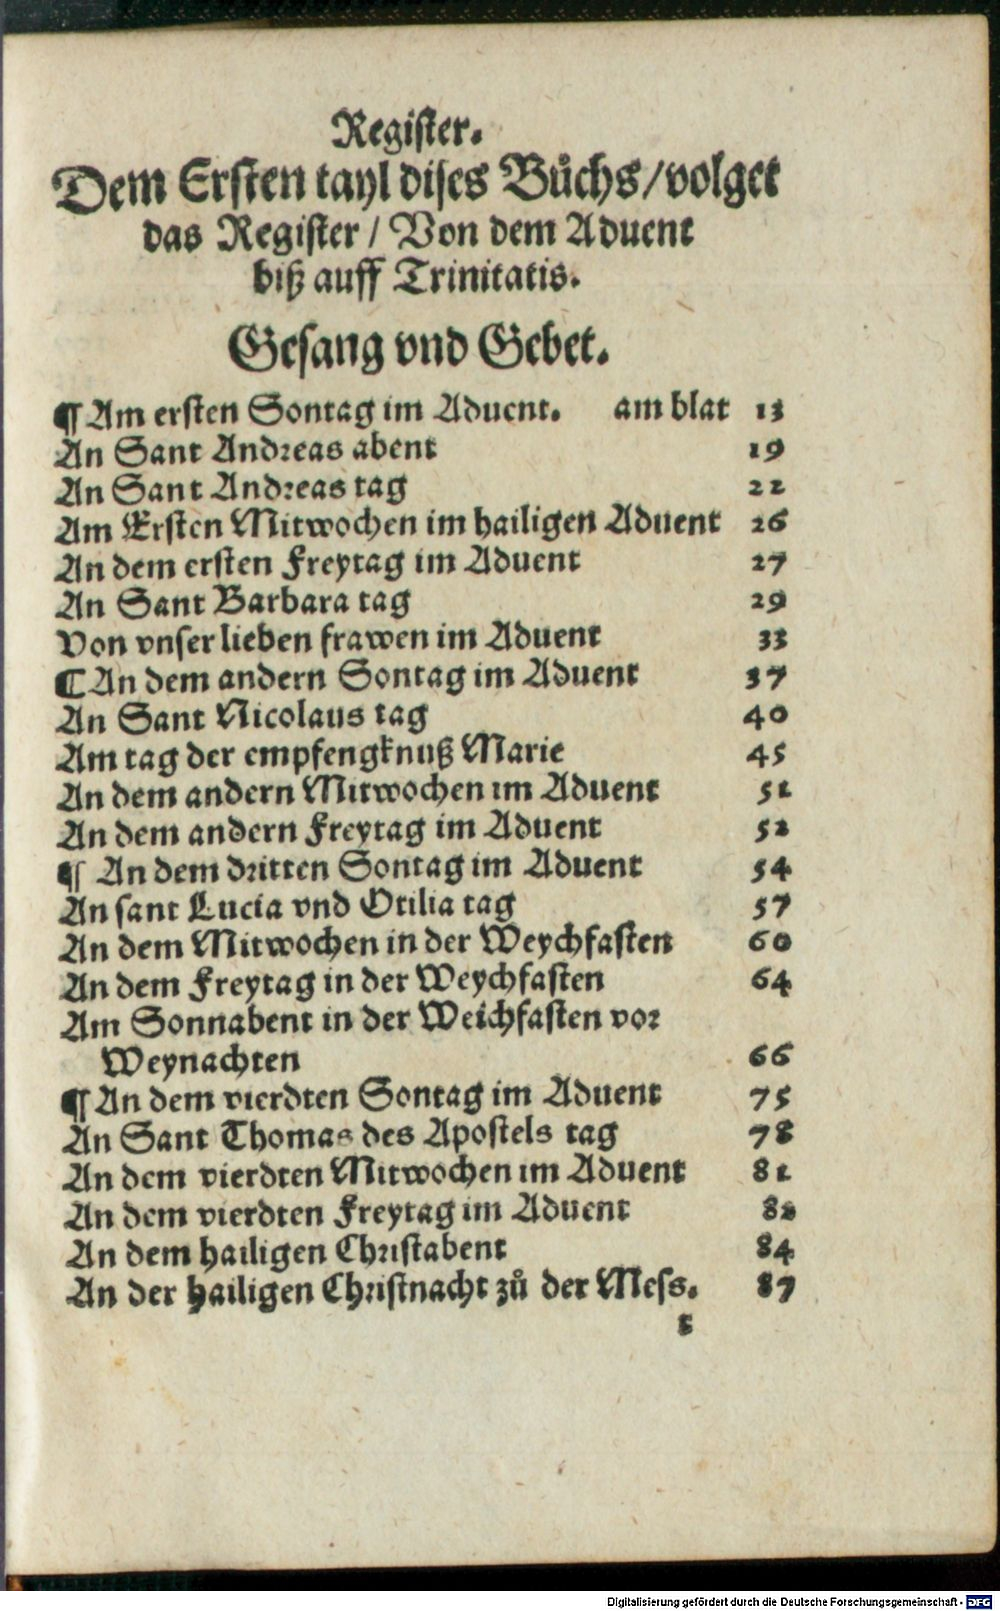 Register.
Dem Ersten tayl dises Bůchs / volget
das Register / Von dem Aduent
biß auff Trinitatis.
Gesang vnd Gebet.
¶ Am ersten Sontag im Aduent. am blat 13
An Sant Andreas abent 19
An Sant Andreas tag 22
Am Ersten Mitwochen im hailigen Aduent 26
An dem ersten Freytag im Aduent 27
An Sant Barbara tag 29
Von vnser lieben frawen im Aduent 33
¶ An dem andern Sontag im Aduent 37
An Sant Nicolaus tag 40
Am tag der empfengknuß Marie 45
An dem andern Mitwochen im Aduent 51
An dem andern Freytag im Aduent 52
¶ An dem dritten Sontag im Aduent 54
An sant Lucia vnd Otilia tag 57
An dem Mitwochen in der Weychfasten 60
An dem Freytag in der Weychfasten 64
Am Sonnabent in der Weichfasten vor
Weynachten 66
¶ An dem vierdten Sontag im Aduent 75
An Sant Thomas des Apostels tag 78
An dem vierdten Mitwochen im Aduent 81
An dem vierdten Freytag im Aduent 82
An dem hailigen Christabent 84
An der hailigen Christnacht zů der Mess. 87
Digitalisierung gefördert durch die Deutsche Forschungsgemeinschaft - DFG